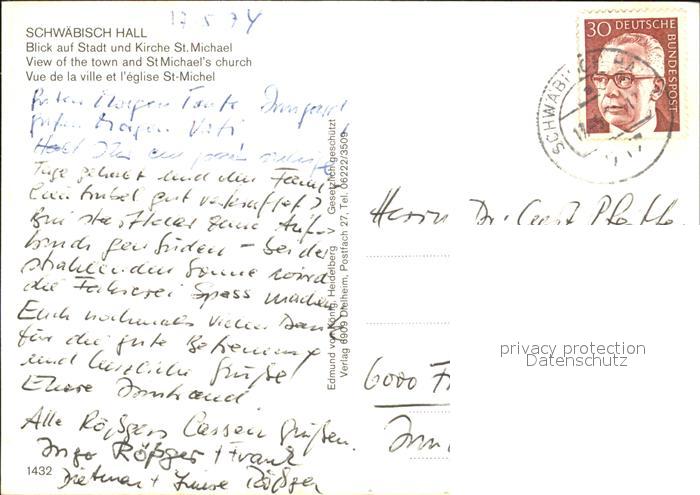 17.5.74
SCHWÄBISCH HALL
Blick auf Stadt und Kirche St. Michael
View of the town and St Michael's church
Vue de la ville et l'église St-Michel
30 DEUTSCHE
BUNDESPOST
SCHWÄBISCH HALL
Guten Morgen Tante Irmgard
guten Morgen Vati
Habt Ihr ein paar
Tage gehabt und den
gut verkraftet?
Wir starten zum Auf-
bruch gen Süden - bei der
strahlenden Sonne wird
die Fahrerei Spass machen
Euch nochmals vielen Dank
für die gute Betreuung
und herzliche Grüße
Eure
Alle Rößgers lassen grüßen.
Ingo Rößger + Frank
Dietmar + Rößger
1432
Edmund von König, Heidelberg Gesetzlich geschützt
Verlag 6909 Dielheim, Postfach 27, Tel. 06222/3509
Herrn Dr.
6000 F
privacy protection
Datenschutz